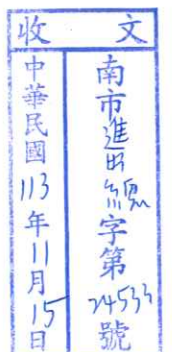 收文
南市進出總字第24533號
中華民國113年11月15日